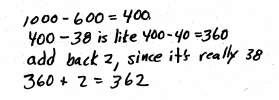 1000 - 600 = 400.
400 - 38 is like 400-40 = 360
add back 2, since it's really 38
360 + 2 = 362